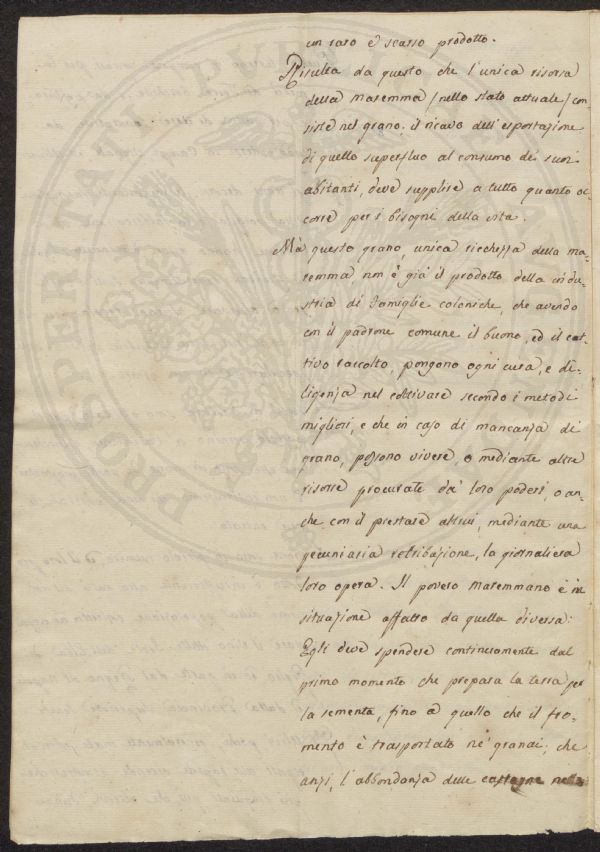 un raro e scarso prodotto.
Risulta da questo che l'unica risorsa
della maremma /nello stato attuale/ con-
siste nel grano; il ricavo dell'esportazione
di quello superfluo al consumo dei suoi
abitanti, deve supplire a tutto quanto oc-
corre per i bisogni della vita.
Mà questo grano, unica ricchezza della ma-
remma non è già il prodotto della indu-
stria di famiglie coloniche, che avendo
con il padrone comune il buono, ed il cat-
tivo raccolto, pongono ogni cura, e di-
ligenza nel coltivare secondo i metodi
migliori, e che in caso di mancanza di
grano, possono vivere, o mediante altre
risorse procurate da' loro poderi, o an-
che con il prestare altrui, mediante una
pecuniaria retribuzione, la giornaliera
loro opera. Il povero Maremmano è in
situazione affatto da quella diversa:
Egli deve spendere continuamente dal
primo momento che prepara la terra per
la sementa, fino a quello che il fro-
mento è trasportato ne' granai; che
anzi, l'abbondanza delle castagne nella
PROSPERITATI PUBLICAE